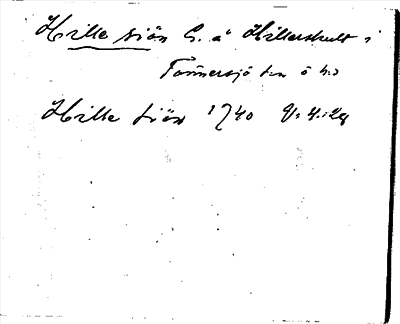 Hille sjön S. å Hillerskult i
Tönnersjö sn ö hd
Hille siön 1740 V:4:28